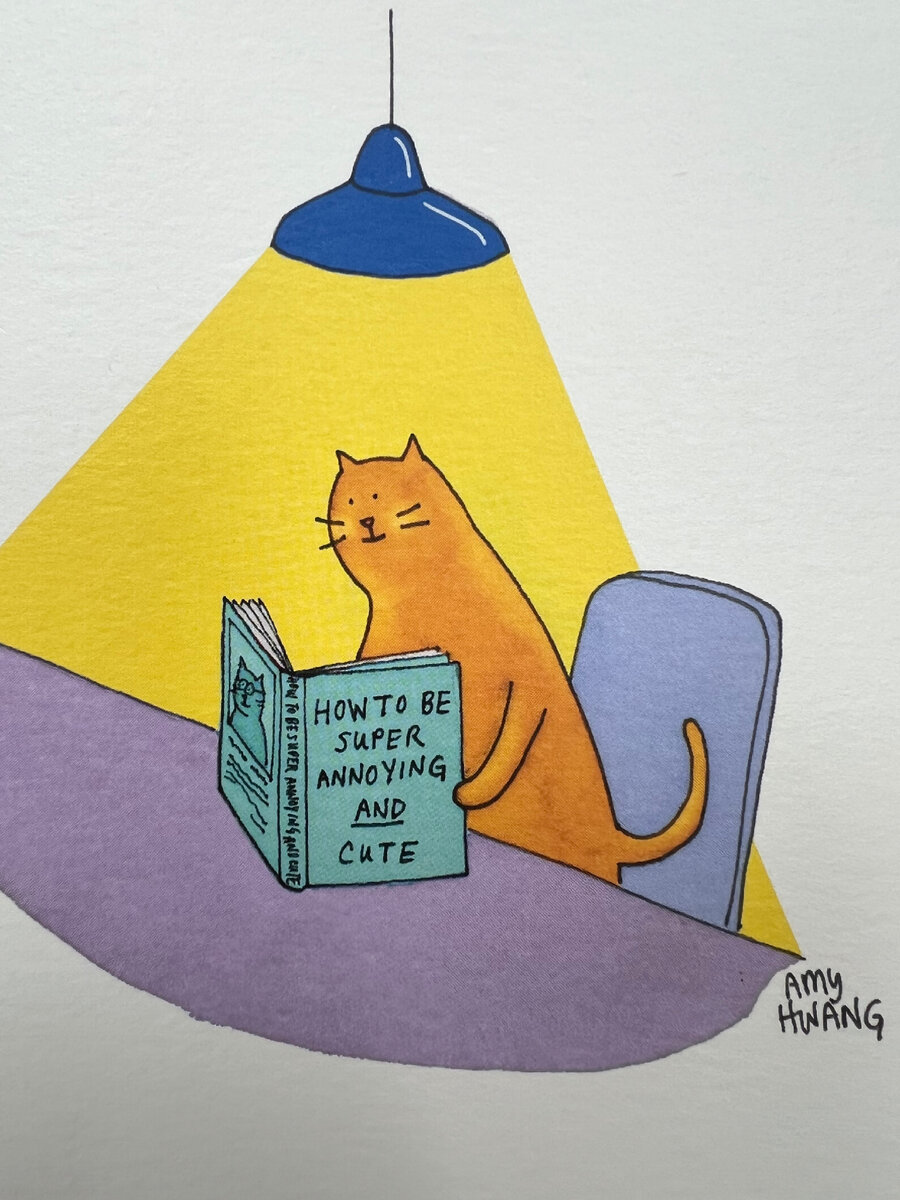 HOW TO BE
SUPER
ANNOYING
AND
CUTE
HOW TO BE SUPER ANNOYING AND CUTE
AMY
HWANG